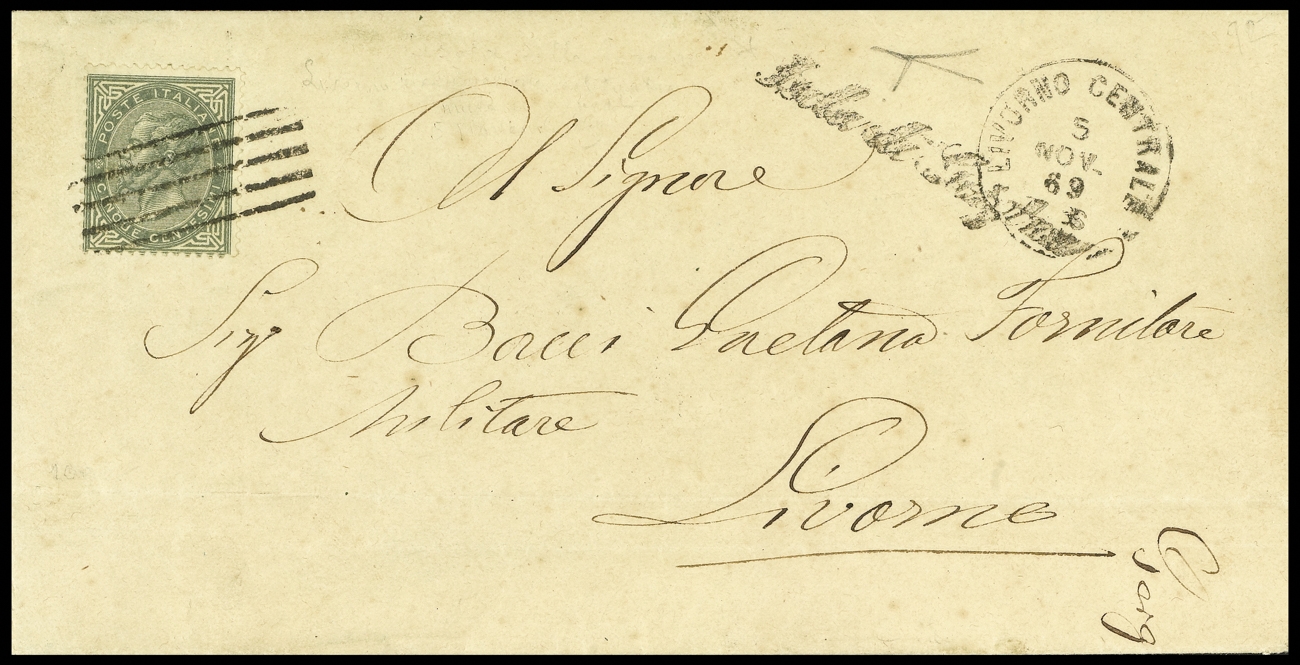 POSTE ITALIANE
CINQUE CENTESIMI
LIVORNO CENTRALE
5
NOV.
69
Al Signore
Sig Bacci Gaetano Fornitore
Militare
Livorno